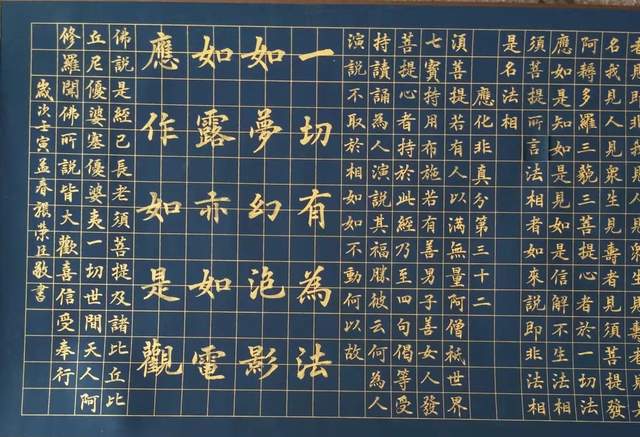 名我見人見眾生見壽者見須菩提發
阿耨多羅三藐三菩提心者於一切法
應如是知如是見如是信解不生法相
須菩提所言法相者如來說即非法相
是名法相
應化非真分第三十二
湏菩提若有人以滿無量阿僧祇世界
七寶持用布施若有善男子善女人發
菩提心者持於此經乃至四句偈等受
持讀誦為人演說其福勝彼云何為人
演說不取於相如如不動何以故
一切有為法
如夢幻泡影
如露亦如電
應作如是觀
佛說是經已長老須菩提及諸比丘比
丘尼優婆塞優婆夷一切世間天人阿
修羅聞佛所說皆大歡喜信受奉行
歲次壬寅孟春張榮臣敬書